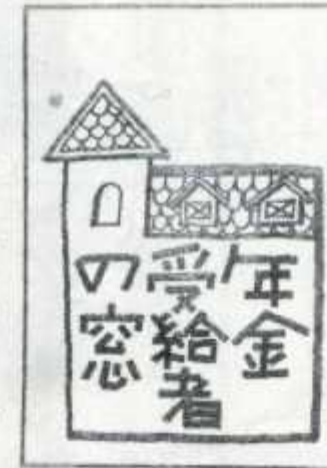 年金
受給者
の窓